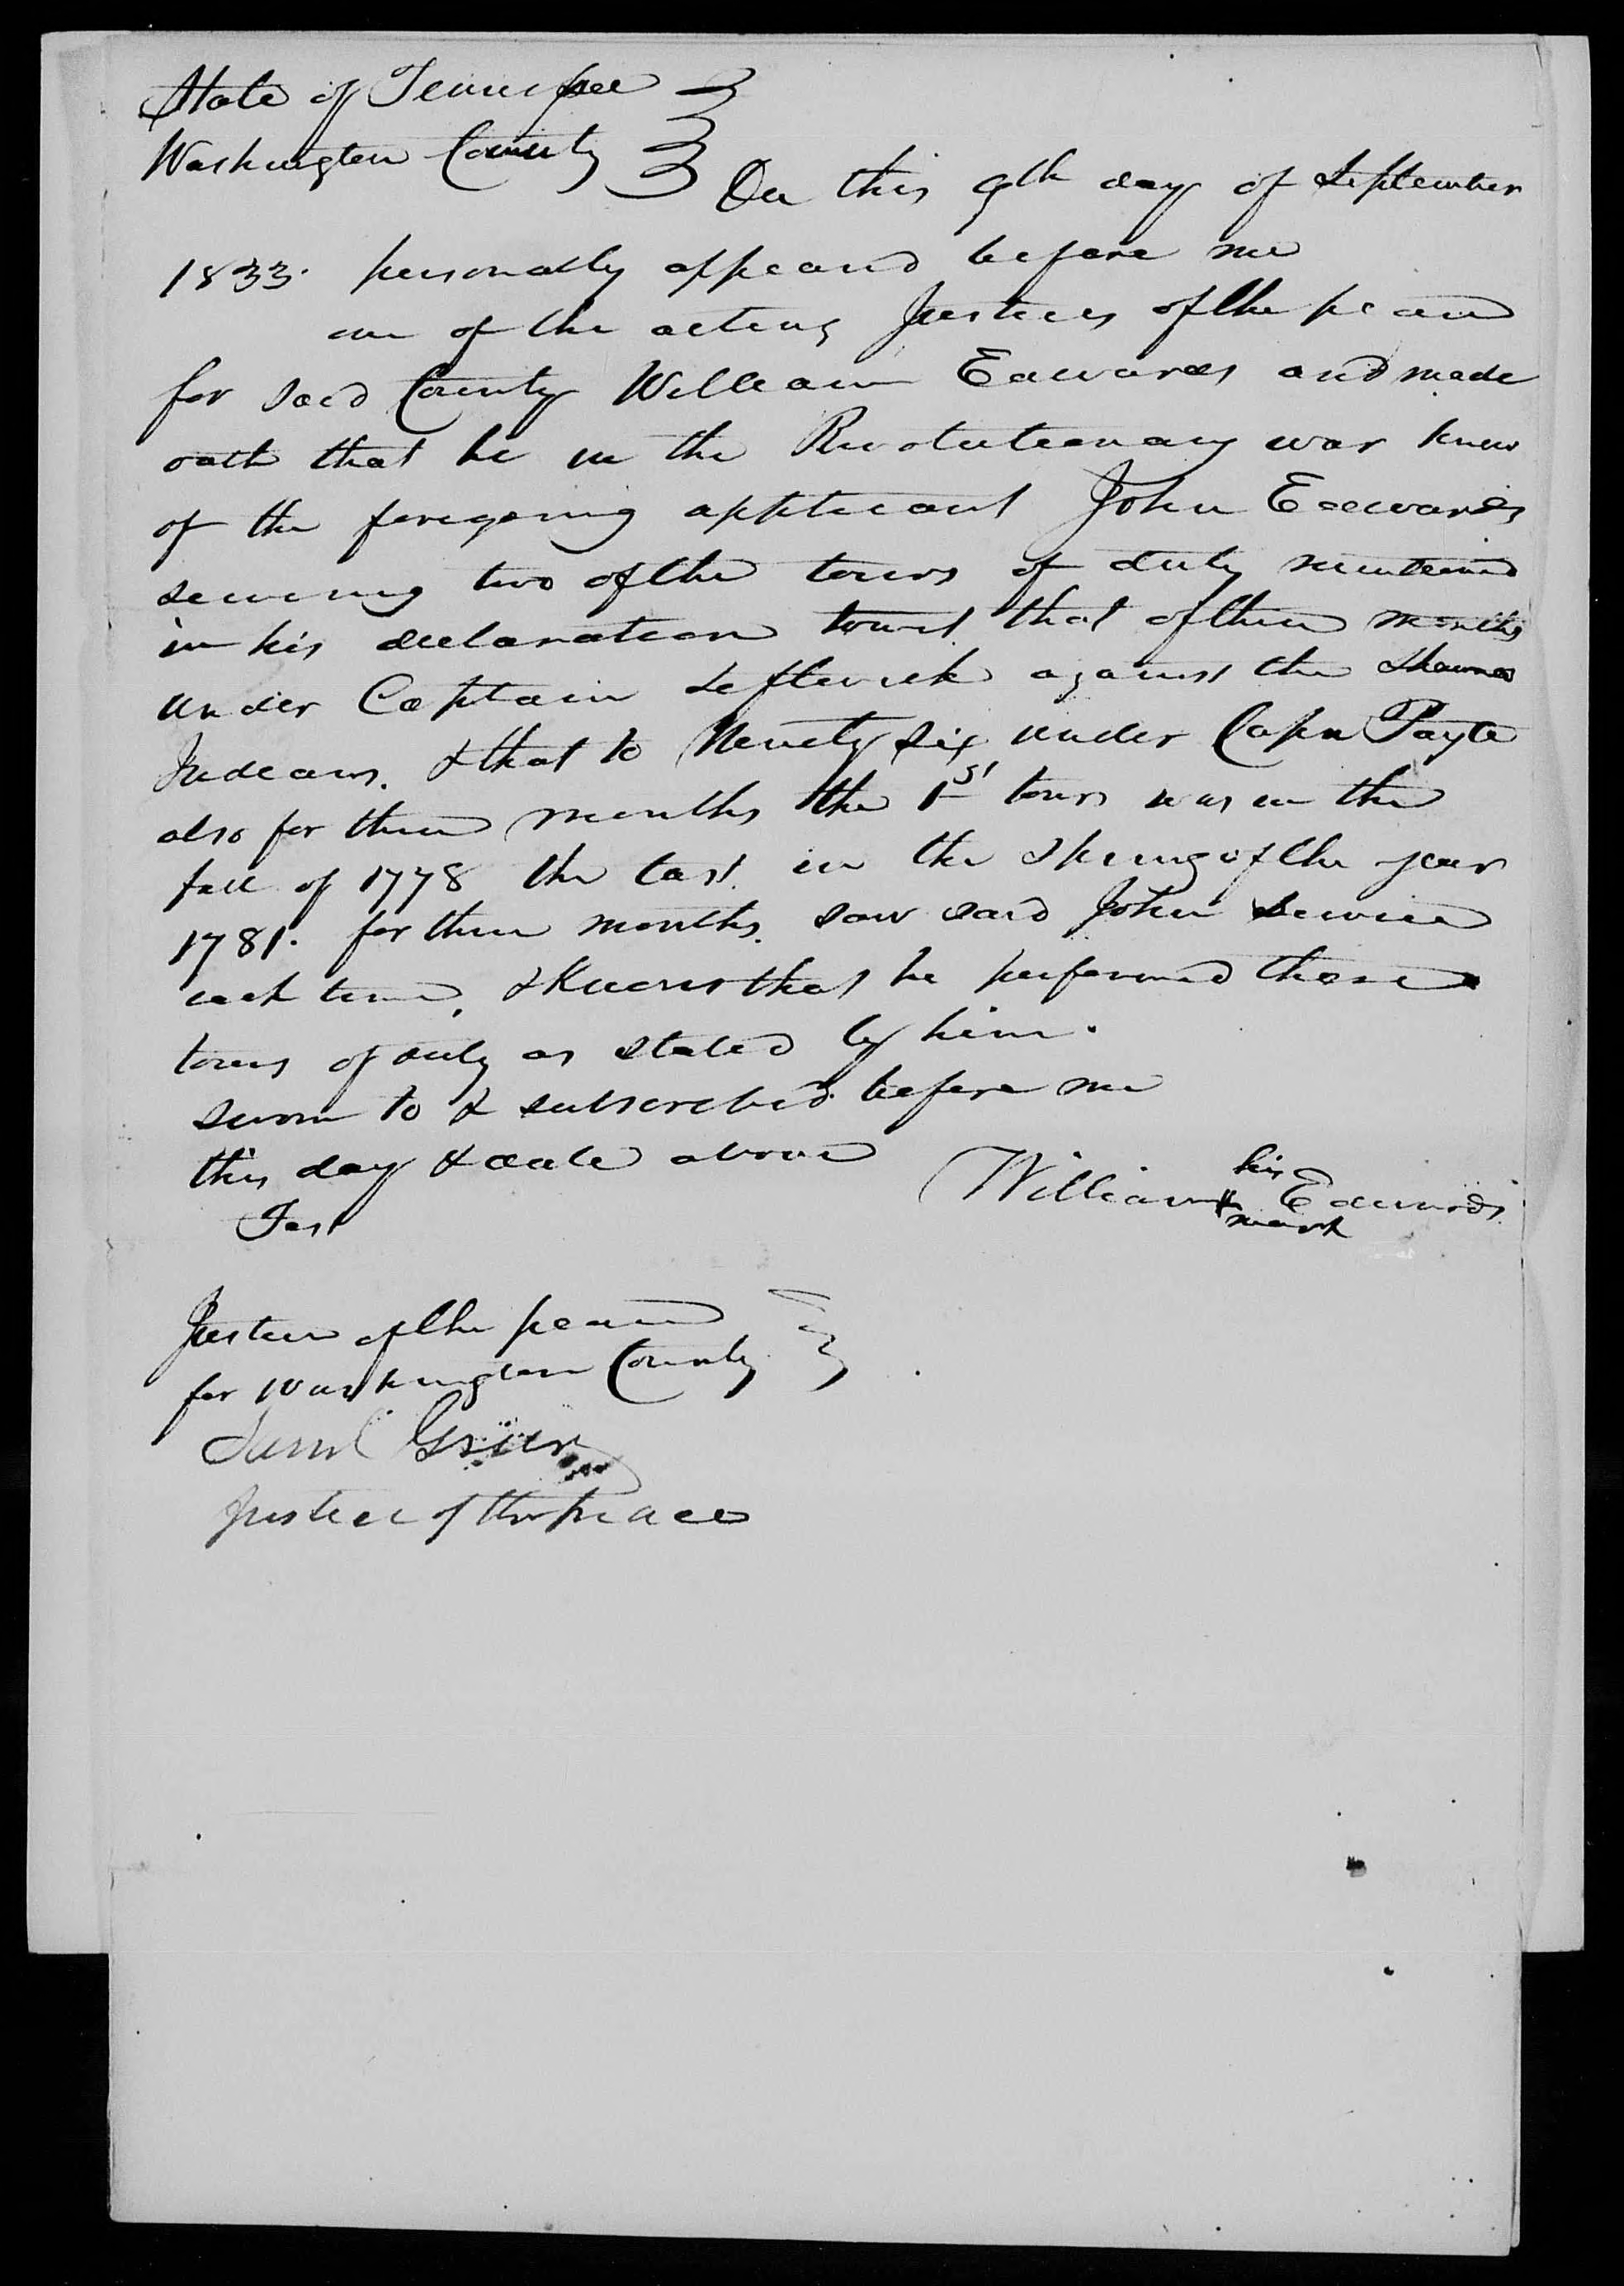 State of Tennessee
Washington County
On this 9th day of September
1833. personally appeared before me
one of the acting Justices of the peace
for said County William Edwards and made
oath that he in the Revolutionary war knew
of the foregoing applicant John Edwards
serving two of the tours of duty mentioned
in his declaration that of three months
under Captain Leftwich against the Shawnee
Indians. & that to Ninety Six under Capn
also for three months the 1st tours was in the
fall of 1778 the last in the Spring of the year
1781. for three months. saw said John
each time, & Knows that he performed those
tours of duty as stated by him.
sworn to & subscribed before me
this day & date above
William his Edwards
mark
Test
Justice of the peace
for Washington County
Saml Greer
Justice of the peace